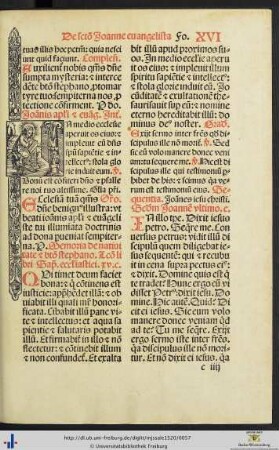 De scto Joanne euangelista Fo. XVI
mas illis hoc pctm: quia nesci
unt quid faciunt. Complen.
Auxilient nobis qs dne
sumpta mysteria: et interce
dete bto stephano, ptomar
tyre tuo sempiterna nos p
tectione cofirment. P do.
Joanis apli et euag. Int.
In medio ecclesie
aperuit os eius: et
impleuit eu dns
spu sapietie et in-
tellect: stola glo
rie induit eum. V.
Bonu est confiteri dno: et psalle
re noi tuo altissime. Glia pri.
Ecclesia tua qs dne Oro.
dne benignus illustra: vt
beati ioanis apli et euageli
ste tui illuminata doctrinis
ad dona pueniat sempiter-
na. P. Memoria de natiui
tate et bto stephano. Lco li
bri Sap. ecclesiastici. xv. c.
Qui timet deum faciet
bona: et q cotinens est
iusticie: apphedet illa: et ob
uiabit illi quasi mr honorifi-
cata. Cibabit illu pane vi-
te et intellectus: et aqua sa
pientie et salutaris potabit
illu. Et firmabit in illo: et no
flectetur: et cotinebit illum
et non confundet. Et exalta
bit illu apud proximos suos.
In medio ecclesie aperi
et os eius: et implebit illum
spiritu sapietie et intellect:
et stola glorie induit eu. Jo
cuditate et exultatione the-
saurizabit super illu: et nomine
eterno hereditabit illu: do-
minus de noster. Grad.
Exijt sermo inter fres q disci-
pulus ille no morit. V. Sed sic
eu volo manere donec veni
am: tu sequere me. Hic est di-
scipulus ille q testimoniu p
hibet de his: et scimus qa ve-
rum est testimoniu eius. Se-
quentia. Joannes iesu christi.
Scdm Joanne vltimo. c.
In illo tpe. Dixit iesus
petro. Sequere me. Con
uersus petrus: vidit illu di
scipulu quem diligebat ie-
sus sequente: qui et recubuit
in cena super pectus eius:
et dixit. Domine quis est q
te tradet? Hunc ergo cu vi
disset Petrus: dixit iesu. Do-
mine. Hic aute. Quid? Di-
cit ei iesus. Sic eum volo
manere donec veniam: qd
ad te? Tu me sequere. Exijt
ergo sermo iste inter fres:
qa discipulus ille non mo-
ritur. Et no dixit ei iesus. qa
c iiij
http://dl.ub.uni-freiburg.de/diglit/mjssale1520/0057
© Universitätsbibliothek Freiburg